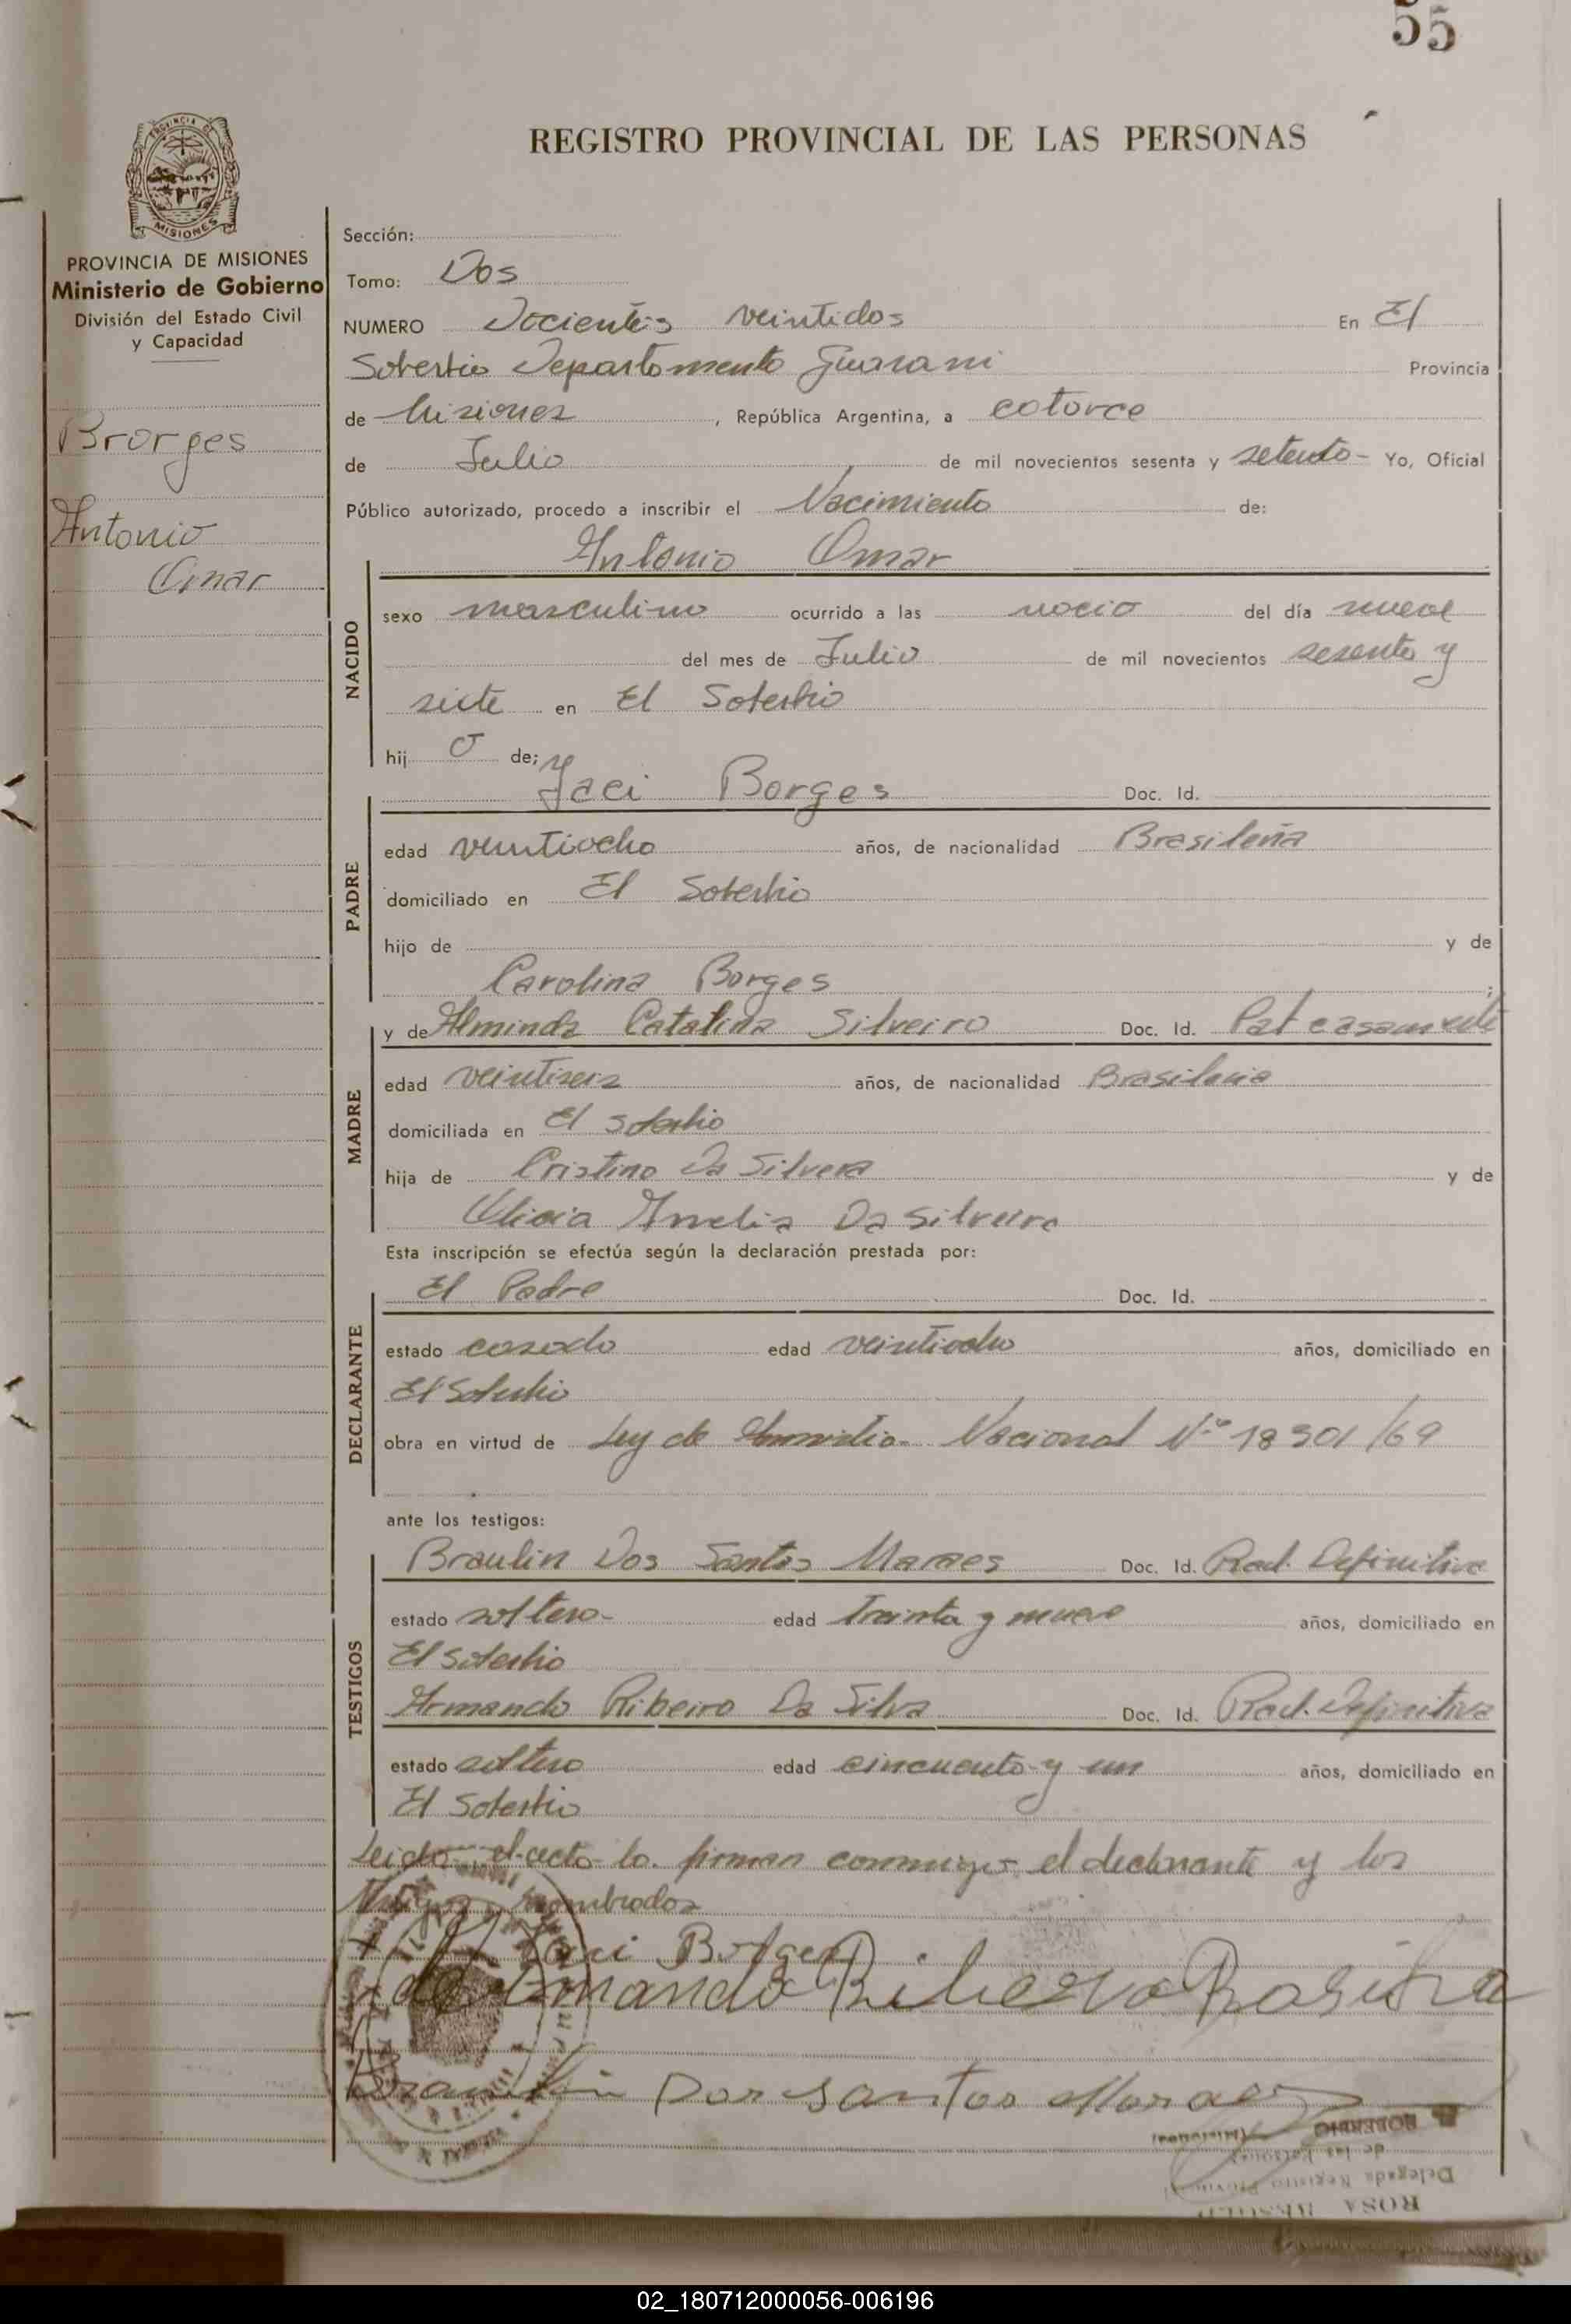 55
REGISTRO PROVINCIAL DE LAS PERSONAS
PROVINCIA DE MISIONES
Ministerio de Gobierno
División del Estado Civil
y Capacidad
Brorges
Antonio
Omar
Sección:
Tomo: Dos
NUMERO Docientos veintidos En El
Soberbio Departamento Guarani Provincia
de Misiones, República Argentina, a catorce
de Julio de mil novecientos sesenta y setenta - Yo, Oficial
Público autorizado, procedo a inscribir el Nacimiento de:
NACIDO
Antonio Omar
sexo masculino ocurrido a las del día nueve
del mes de Julio de mil novecientos sesenta y
siete en El Soberbio
hij o de;
PADRE
Jaci Borges Doc. Id.
edad veintiocho años, de nacionalidad Brasileña
domiciliado en El Soberbio
hijo de y de
Carolina Borges ;
MADRE
y de Alminda Catalina Silveiro Doc. Id.
edad veintiseis años, de nacionalidad Brasileña
domiciliada en El Soberbio
hija de Cristino Da Silvera y de
Amelia Da Silveira
Esta inscripción se efectúa según la declaración prestada por:
DECLARANTE
El Padre Doc. Id.
estado casado edad veintiocho años, domiciliado en
El Soberbio
obra en virtud de Ley de Amnistia Nacional Nº 18301/69
ante los testigos:
TESTIGOS
Braulin Dos Santos Maraes Doc. Id. Rad. Definitiva
estado soltero - edad treinta y nueve años, domiciliado en
El Soberbio
Armando Ribeiro Da Silva Doc. Id. Rad. Definitiva
estado soltero edad cincuenta y un años, domiciliado en
El Soberbio
Leido el acto lo firman conmigo el declarante y los
testigos nombrados
Jaci Borges
Dos santos Moraes
EL SOBERBIO
(Misiones)
de las Personas
Delegada Registro Provincial
ROSA
02_180712000056-006196